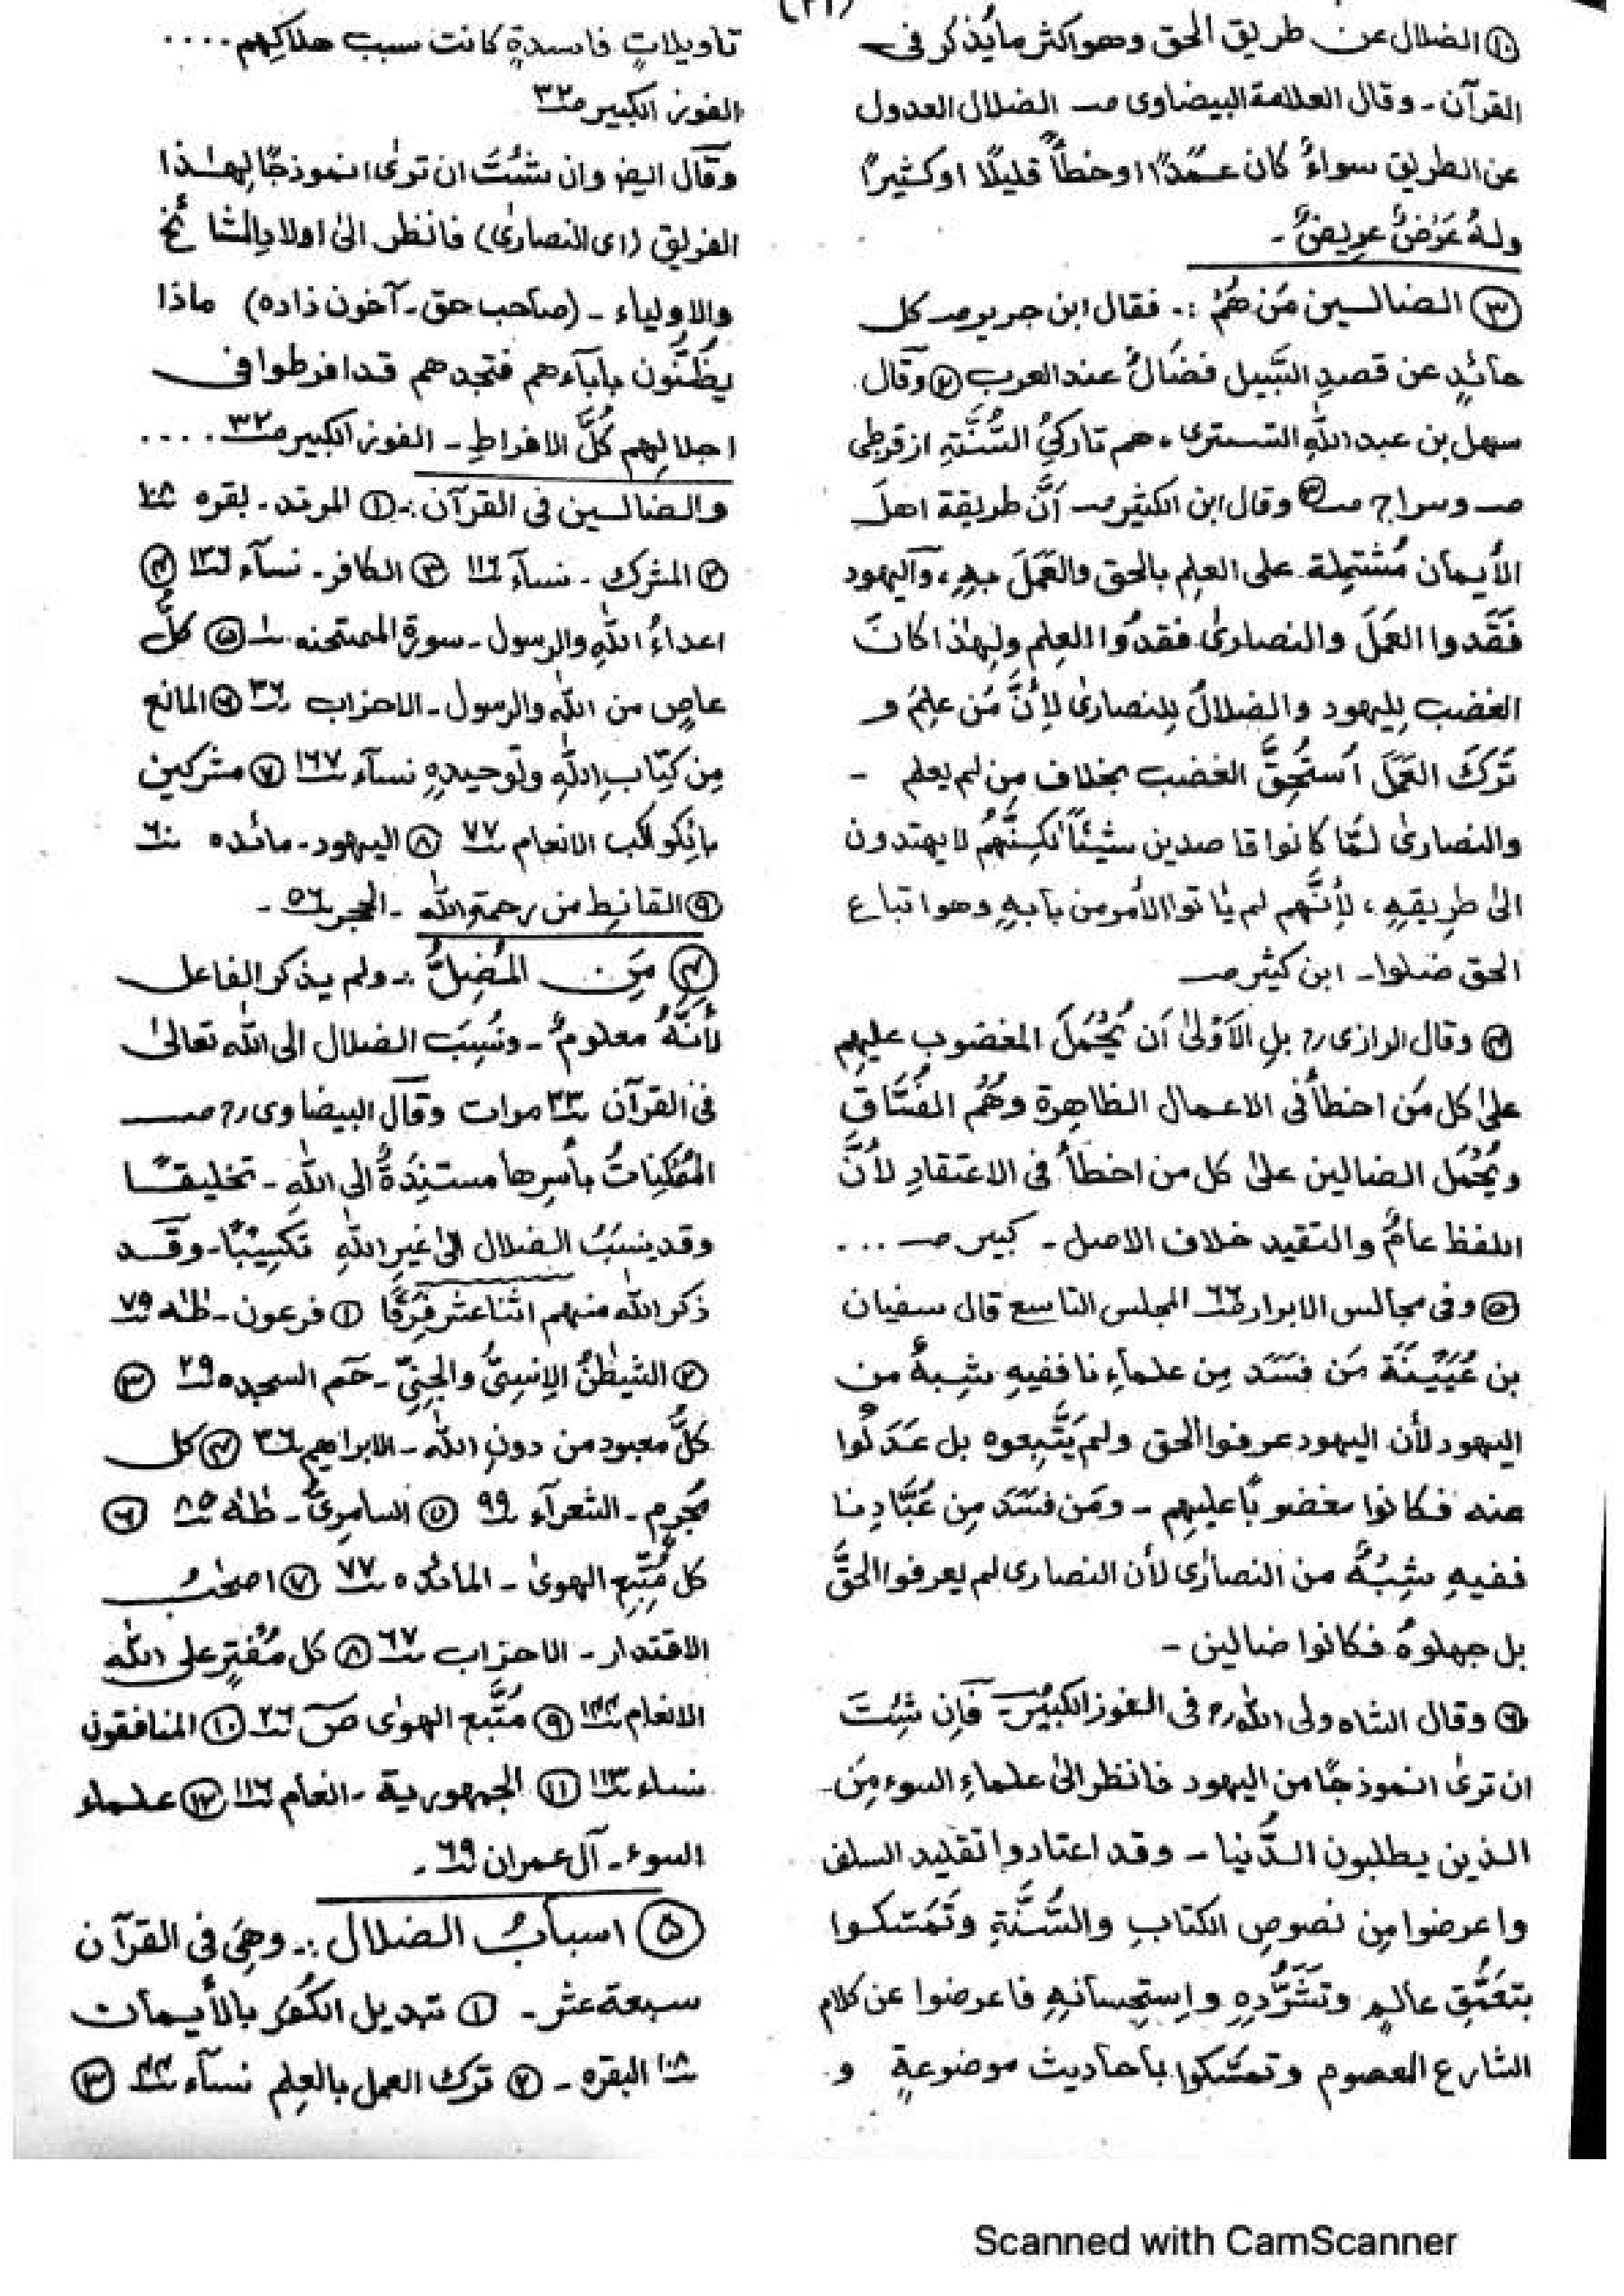 (٢١)
⑩ الضلال عن طريق الحق وهو اكثر ما يُذكر فى
القرآن ـ وقال العلامة البيضاوى صـ الضلال العدول
عن الطريق سواءٌ كان عمدًا او خطأً قليلًا او كثيرًا
ولهٗ عَرْضٌ عريضٌ ـ
③ الضالين مَن هُمْ :ـ فقال ابن جرير صـ كل
حائدٍ عن قصدِ السَّبيل فضَالٌّ عند العرب ② وقال
سهل بن عبد اللّٰه التسترى ، هم تاركىُ السُّنَّةِ از قرطبى
صـ وسراج صـ ③ وقال ابن الكثير صـ اَنَّ طريقة اهلَ
الأيمان مُشْتَمِلة على العلمِ بالحق والعَمَلَ بهٖ ، واليهود
فَقَدوا العَمَلَ والنصارىٰ فقدُوا العِلم ولِهٰذا كانَ
الغضب لِليهود والضلالُ لِلنصارىٰ لِأنَّ مَن علِمَ و
تَرَكَ العَمَلَ اُستُحِقَّ الغضب بخلاف مِن لم يعلم ـ
والنصارىٰ لمَّا كانوا قاصدين شيئًا لكِنَّهُم لا يهتدون
الىٰ طريقِهٖ ، لِأنَّهم لم يأتوا الأمر من بابهٖ وهو اتباع
الحق ضلوا ـ ابن كثير صـ
④ وقال الرازى رح بلِ الاَوْلىٰ اَن يُحْمَلَ المغضوب عليهم
علىٰ كل مَن اخطأ فى الاعمال الظاهِرة وهُمُ الفُسَّاق
ويُحْمَل الضالين علىٰ كل من اخطأ فى الاعتقادِ لأنَّ
اللفظ عامٌّ والتقيد خلاف الاصل ـ كبير صـ ...
⑤ وفى مجالس الابرار صـ٦٦ المجلس التاسع قال سفيان
بن عُيَيْنَة مَن فسَدَ مِن علماءِنا ففيهِ شِبهٌ من
اليهود لأن اليهود عرفوا الحق ولم يَتَّبِعوه بل عَدَلُوا
عنه فكانوا مغضوبًا عليهم ـ ومَن فسَدَ مِن عُبَّادِنا
ففيهِ شِبْهٌ من النصارٰى لأن النصارى لم يعرفوا الحَقَّ
بل جهلوهُ فكانوا ضالين ـ
⑥ وقال الشاه ولى اللّٰه رح فى الفوز الكبير صـ فَإن شِئتَ
ان ترىٰ انموذجًا من اليهود فانظر الىٰ علماءِ السوء مِن
الذين يطلبون الدُّنيا ـ وقد اعتادوا تقليد السلف
واعرضوا مِن نصوصِ الكتابِ والسُّنَّةِ وتَمَسّكوا
بتَعَمُّقِ عالِمٍ وتَشَدُّدِهٖ واِستِحسانهٖ فاعرضوا عن كلام
الشارع المعصوم وتمسّكوا بأحاديث موضوعةٍ و
تاويلاتٍ فاسدةٍ كانت سبب هلاكهم ....
الفوز الكبير صـ٣٢
وقال ايضا وان شئتَ ان ترىٰ انموذجًا لِهٰذا
الفريق (اى النصارىٰ) فانظر الىٰ اولاد المشائخ
والاولياء ـ (صاحب حق ـ آخون زاده) ماذا
يظنُّون بابآءهم فتجدهم قد افرطوا فى
اجلالِهم كُلَّ الافراطِ ـ الفوز الكبير صـ٣٢ ....
والضالين فى القرآن :ـ ① المرتد ـ بقره ١٠٨
② المشرك ـ نسآء ١١٦ ③ الكافر ـ نسآء ١٣٦ ④
اعداءُ اللّٰهِ والرسول ـ سورة الممتحنه ١ ⑤ كلُّ
عاصٍ من اللّٰه والرسول ـ الاحزاب ٣٦ ⑥ المانع
مِن كِتاب اللّٰهِ وتوحيدهٖ نسآء ١٦٧ ⑦ مشركين
بالكواكب الانعام ٧٧ ⑧ اليهود ـ مائده ٦٠
⑨ القانِط من رحمةِ اللّٰه ـ الحجر ٥٦ ـ
④ مَن المُضِلُّ :ـ ولم يذكر الفاعل
لأنَّهٗ معلومٌ ـ ونُسِبَ الضلال الى اللّٰه تعالىٰ
فى القرآن ٣٣ مرات وقال البيضاوى رح صـ
المُمْكِناتُ بأسرِها مستنِدَةٌ الى اللّٰهِ ـ تخليقًا
وقد ينسَبُ الضلال الىٰ غيرِ اللّٰهِ تكسِيْبًا ـ وقد
ذكر اللّٰه منهم اثنا عشر فِرَقًا ① فرعون ـ طٰهٰ ٧٩
② الشيطٰنُ الإنسِىُّ والجِنِىّ ـ حٰم السجده ٢٩ ③
كلُّ معبود من دونِ اللّٰه ـ الابراهيم ٣٦ ④ كل
مُجْرِم ـ الشعرآء ٩٩ ⑤ السامِرىّ ـ طٰهٰ ٨٥ ⑥
كل مُتَّبِع الهوىٰ ـ المائده ٧٧ ⑦ اصحٰبُ
الاقتدار ـ الاحزاب ٦٧ ⑧ كل مُفْتَرٍ على اللّٰهِ
الانعام ١٤٤ ⑨ مُتَّبع الهوىٰ صٓ ٢٦ ⑩ المنافقون
نساء ١١٣ ⑪ الجمهورية ـ انعام ١١٦ ⑫ علماء
السوء ـ آل عمران ٦٩ ـ
⑤ اسبابُ الضلال :ـ وهِىَ فى القرآن
سبعة عشر ـ ① تبديل الكُفر بالأيمان
١٠٨ البقره ـ ② ترك العمل بالعِلم نسآء ٤٤ ③
Scanned with CamScanner